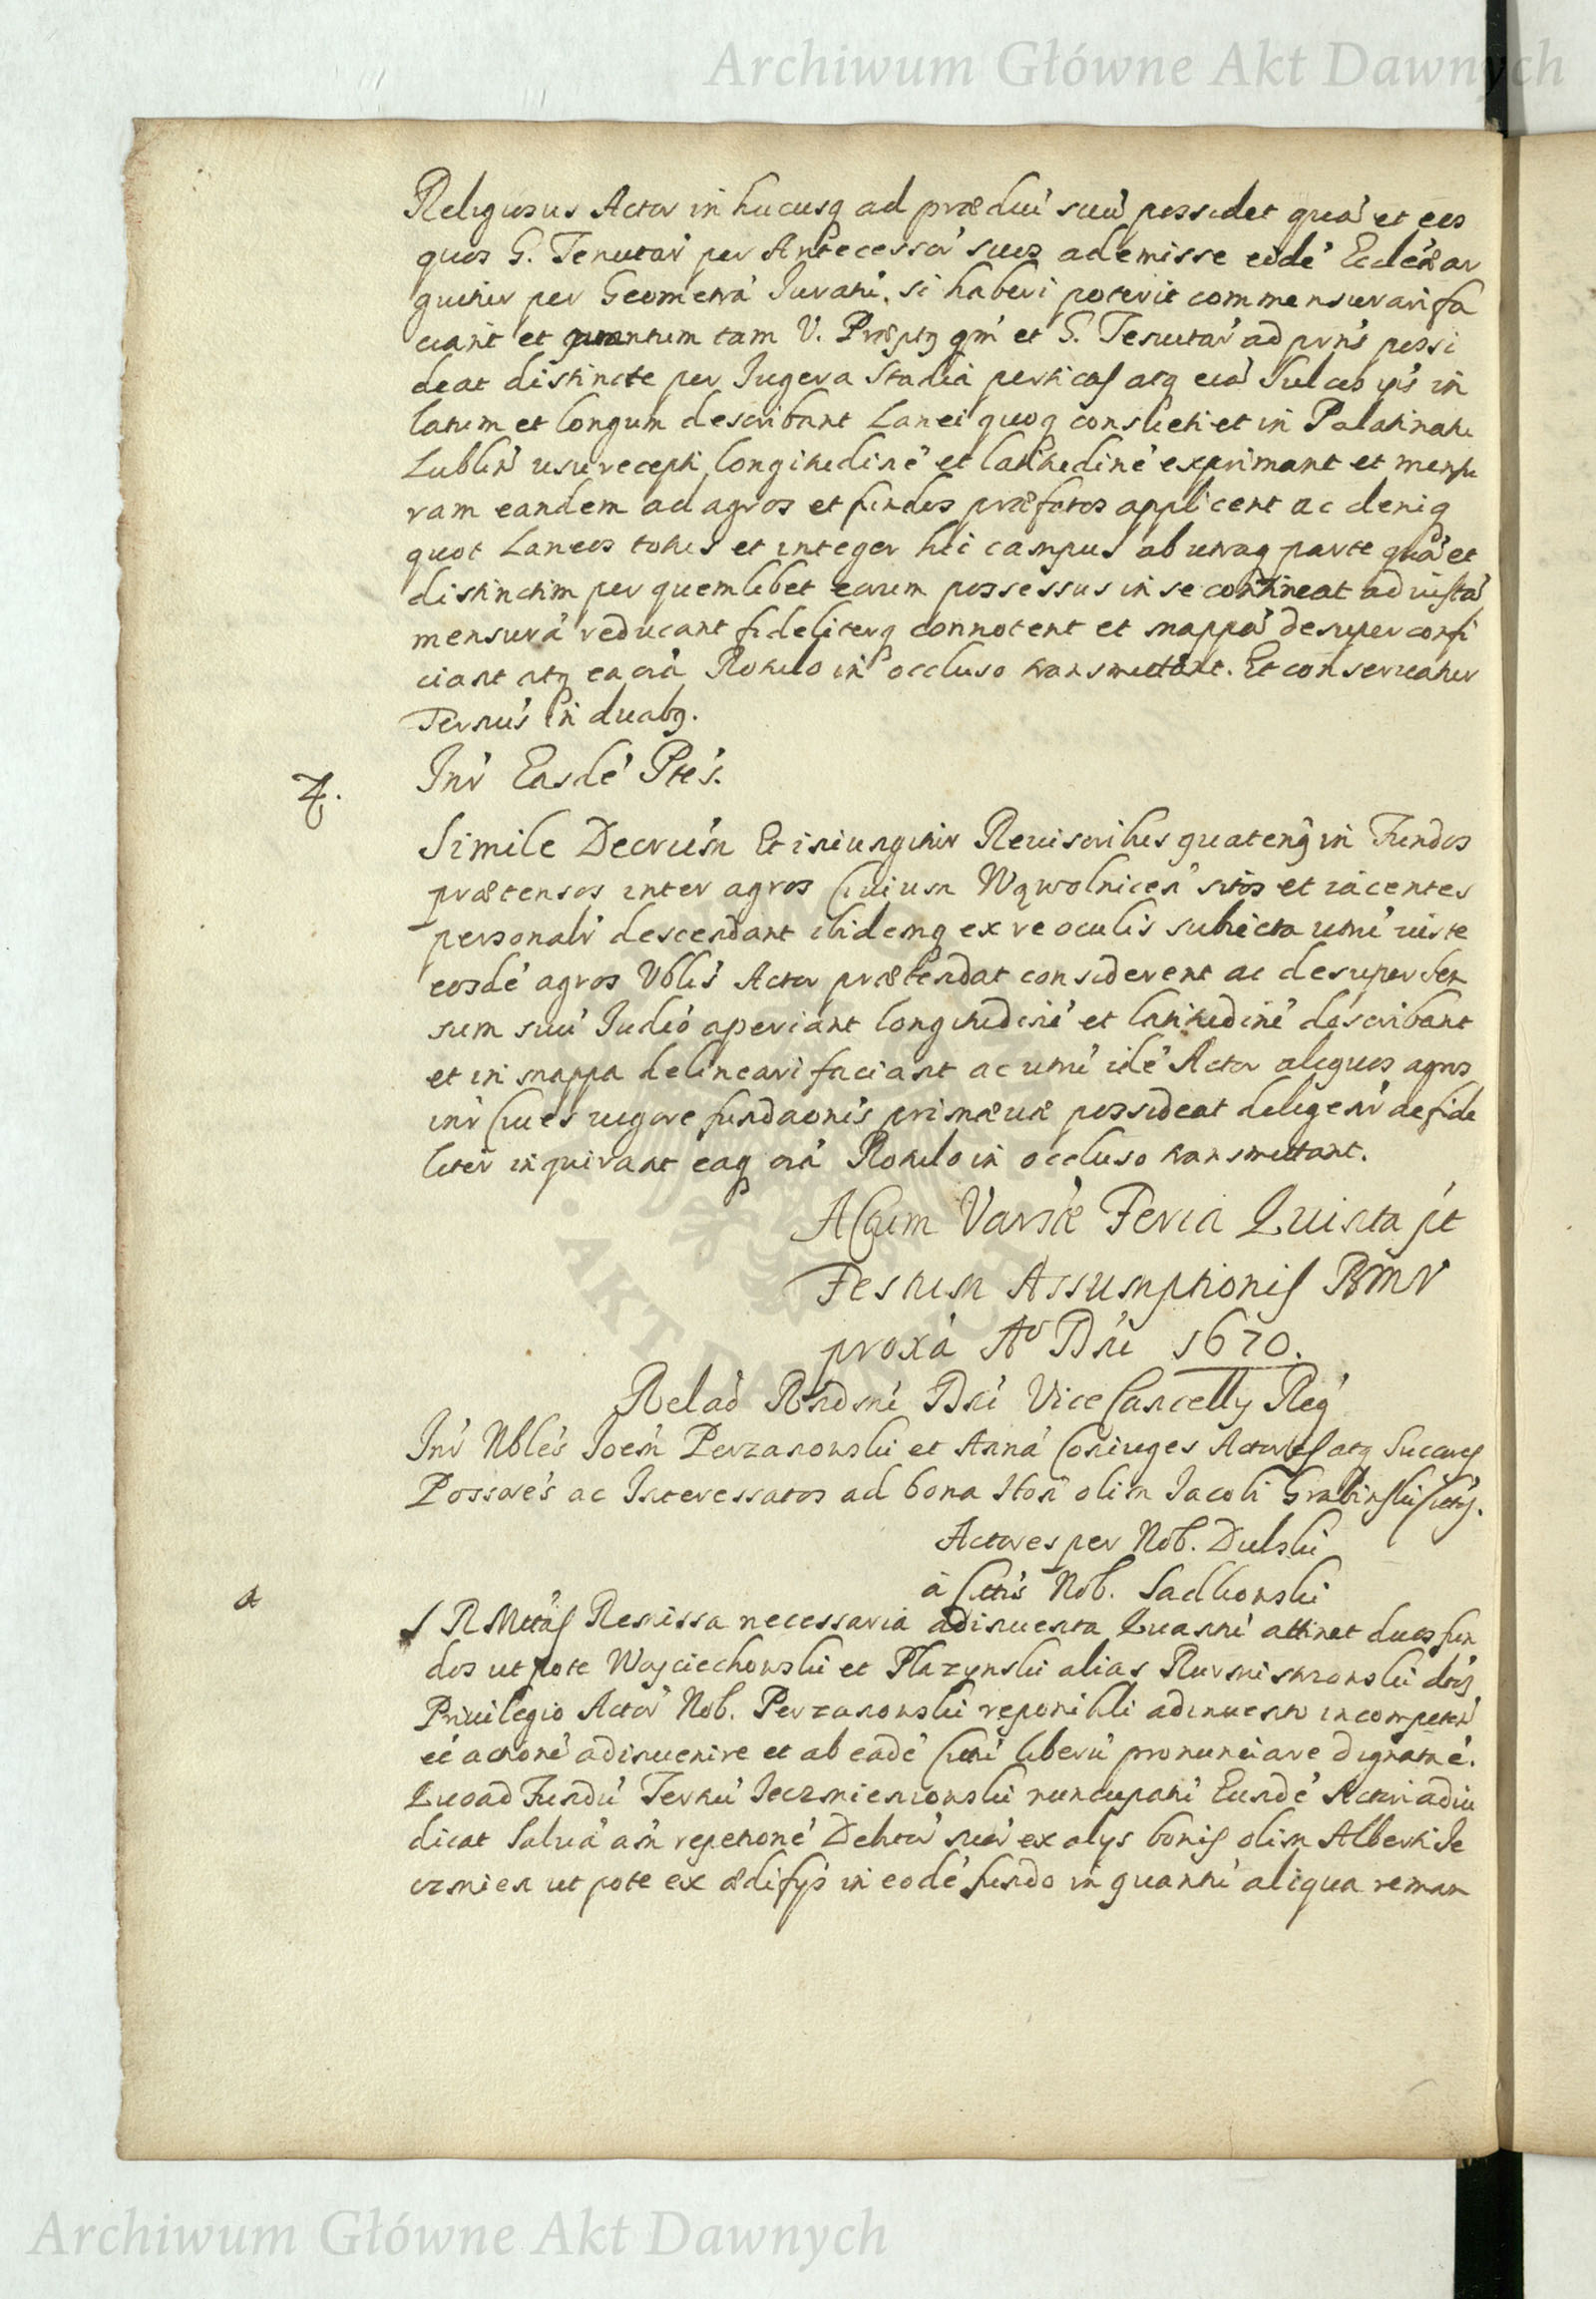 Archiwum Główne Akt Dawnych
Religiosus Actor in hucusq ad prædiu suu possidet qua et eos
quos G. Tenutar per Antecessor suos ademisse eide Ecclesiæ ar
guitur per Geometra Jurati, si haberi poterit commensurari fa
ciant et quantum tam V. Præptg qm et G. Tenutar ad prns possi
deat distincte per Jugera Stadia perticas atq eia Sulcos ips in
latum et longum describant Lanei quoq consueti et in Palatinatu
Lublin usu recepti longitudine et latitudine exprimant et mensu
ram eandem ad agros et fundos præfatos applicent ac deniq
quot Laneos totus et integer hic campus ab utraq parte qua et
distinctim per quemlibet eorum possessus in se contineat ad iusta
mensura reducant fideliterq connotent et mappa desuper confi
ciant atq ea oia Rotulo in occluso transmittant. Et conservatur
Ternus in duabg.
7. Inr Easde Ptes.
Simile Decrum Et iniungitur Reuisoribus quateng in Fundos
prætensos inter agros Ciuium Wąwolnicen sitos et iacentes
personalr descendant ibidemq ex re oculis subiecta utru iuste
eosde agros Nblis Actor prætendat considerent ac desuper Sen
sum suu Judio aperiant longitudine et latitudine describant
et in mappa delineari faciant ac utru ide Actor aliquos agros
inr Ciues uigore fundaonis primæuæ possideat diligenr ac fide
liter inquirant eaq oia Rotulo in occluso transmittant.
Actum Varsæ Feria Quinta pt
Festum Assumptionis BMV
proxa Ao Dni 1670.
Relao Rndmi Dni Vice Cancelly Reg
Inr Nbles Joem Perzanowski et Anna Coniuges Actores atq Succes
Possores ac Interessatos ad bona Hon olim Jacobi Grabinski Cittos.
Actores per Nob. Dulski
a Cittis Nob. Sadkowski
S R Mttas Remissa necessaria adinuenta Quantu attinet duos fun
dos ut pote Wojciechowski et Płazynski alias Rusmistrzowski dcos
Privilegio Actor Nob. Perzanowski reponibili adinuento incompeten
ee actione adinuenire et ab eade Citti liberu pronunciare dignatur.
Quoad Fundu Tertiu Jeczmieniowski nuncupatu Eunde Actori adiu
dicat Salua am repetione Debitor suor ex alys bonis olim Alberti Je
czmien ut pote ex ædifys in eode fundo in quantu aliqua reman
Archiwum Główne Akt Dawnych